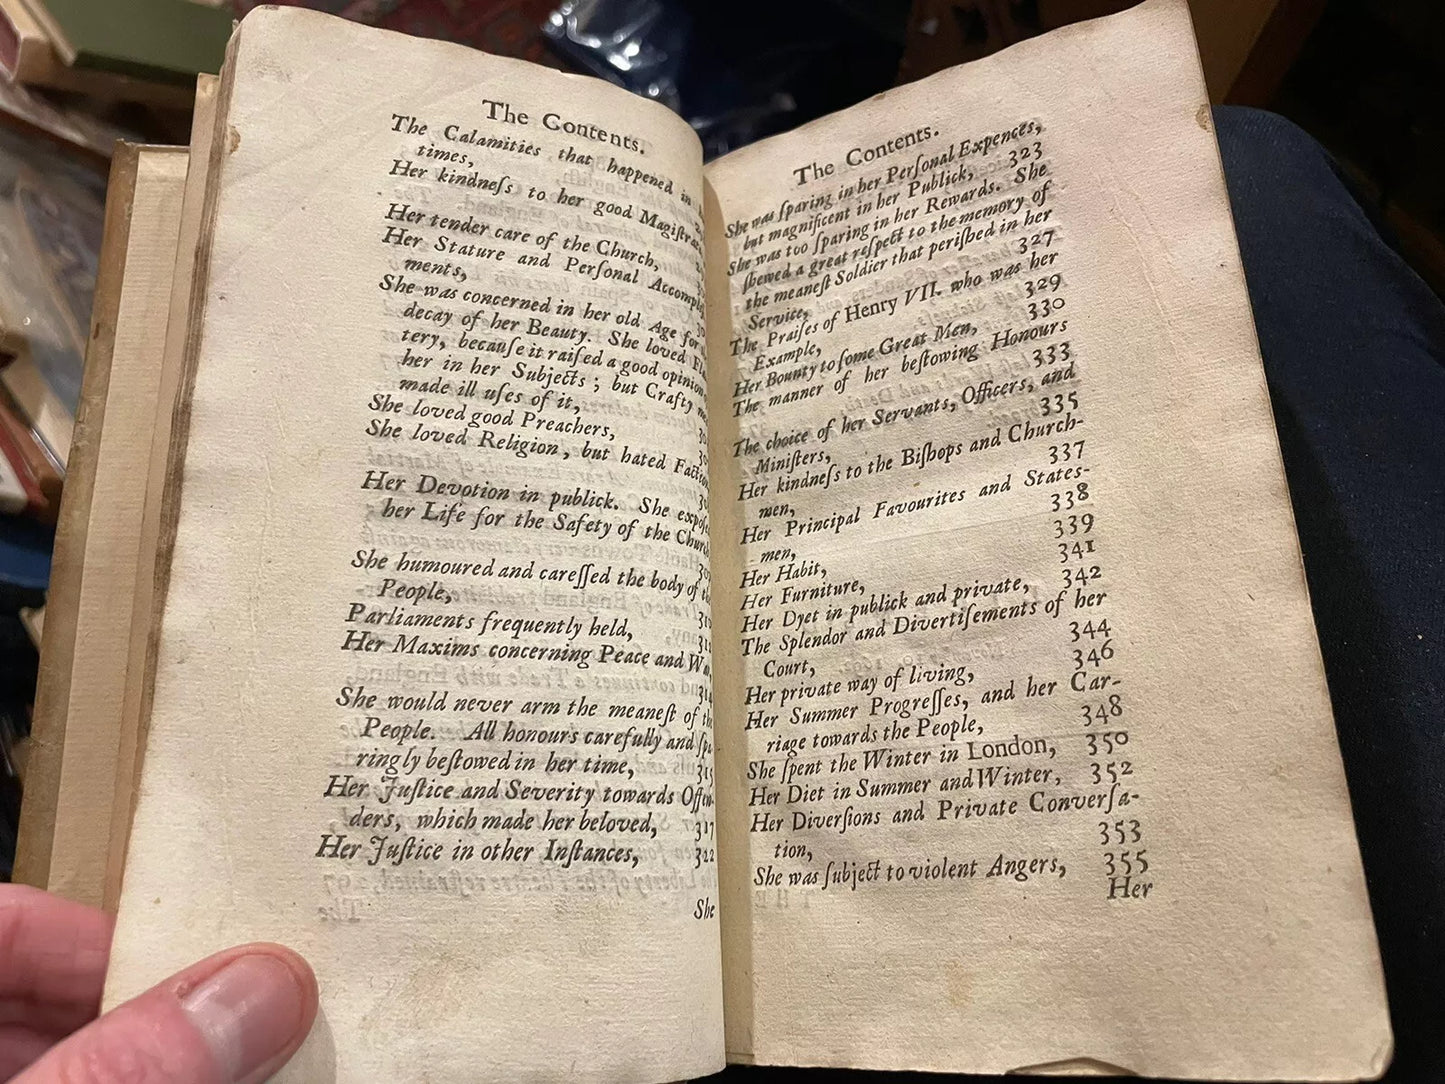 The Contents.
The Calamities that happened in
times,
Her kindneſs to her good Magiſtrat
Her tender care of the Church,
Her Stature and Perſonal Accompliſh
ments,
She was concerned in her old Age for
decay of her Beauty. She loved Fla
tery, becauſe it raiſed a good opinion
her in her Subjects; but Crafty
made ill uſes of it,
She loved good Preachers,
She loved Religion, but hated Faction
Her Devotion in publick. She expoſe
her Life for the Safety of the Church
She humoured and careſſed the body of
People,
Parliaments frequently held,
Her Maxims concerning Peace and W
She would never arm the meaneſt of
People. All honours carefully and ſpa
ringly beſtowed in her time, 315
Her Juſtice and Severity towards Offen-
ders, which made her beloved, 317
Her Juſtice in other Inſtances, 322
She
The Contents.
She was ſparing in her Perſonal Expences,
but magnificent in her Publick, 323
She was too ſparing in her Rewards. She
ſhewed a great reſpect to the memory of
the meaneſt Soldier that periſhed in her
Service, 327
The Praiſes of Henry VII. who was her
Example, 329
Her Bounty to ſome Great Men, 330
The manner of her beſtowing Honours
333
The choice of her Servants, Officers, and
Miniſters, 335
Her kindneſs to the Biſhops and Church-
men, 337
Her Principal Favourites and States-
men, 338
Her Habit, 339
Her Furniture, 341
Her Dyet in publick and private, 342
The Splendor and Divertiſements of her
Court, 344
Her private way of living, 346
Her Summer Progreſſes, and her Car-
riage towards the People, 348
She ſpent the Winter in London, 350
Her Diet in Summer and Winter, 352
Her Diverſions and Private Converſa-
tion, 353
She was ſubject to violent Angers, 355
Her